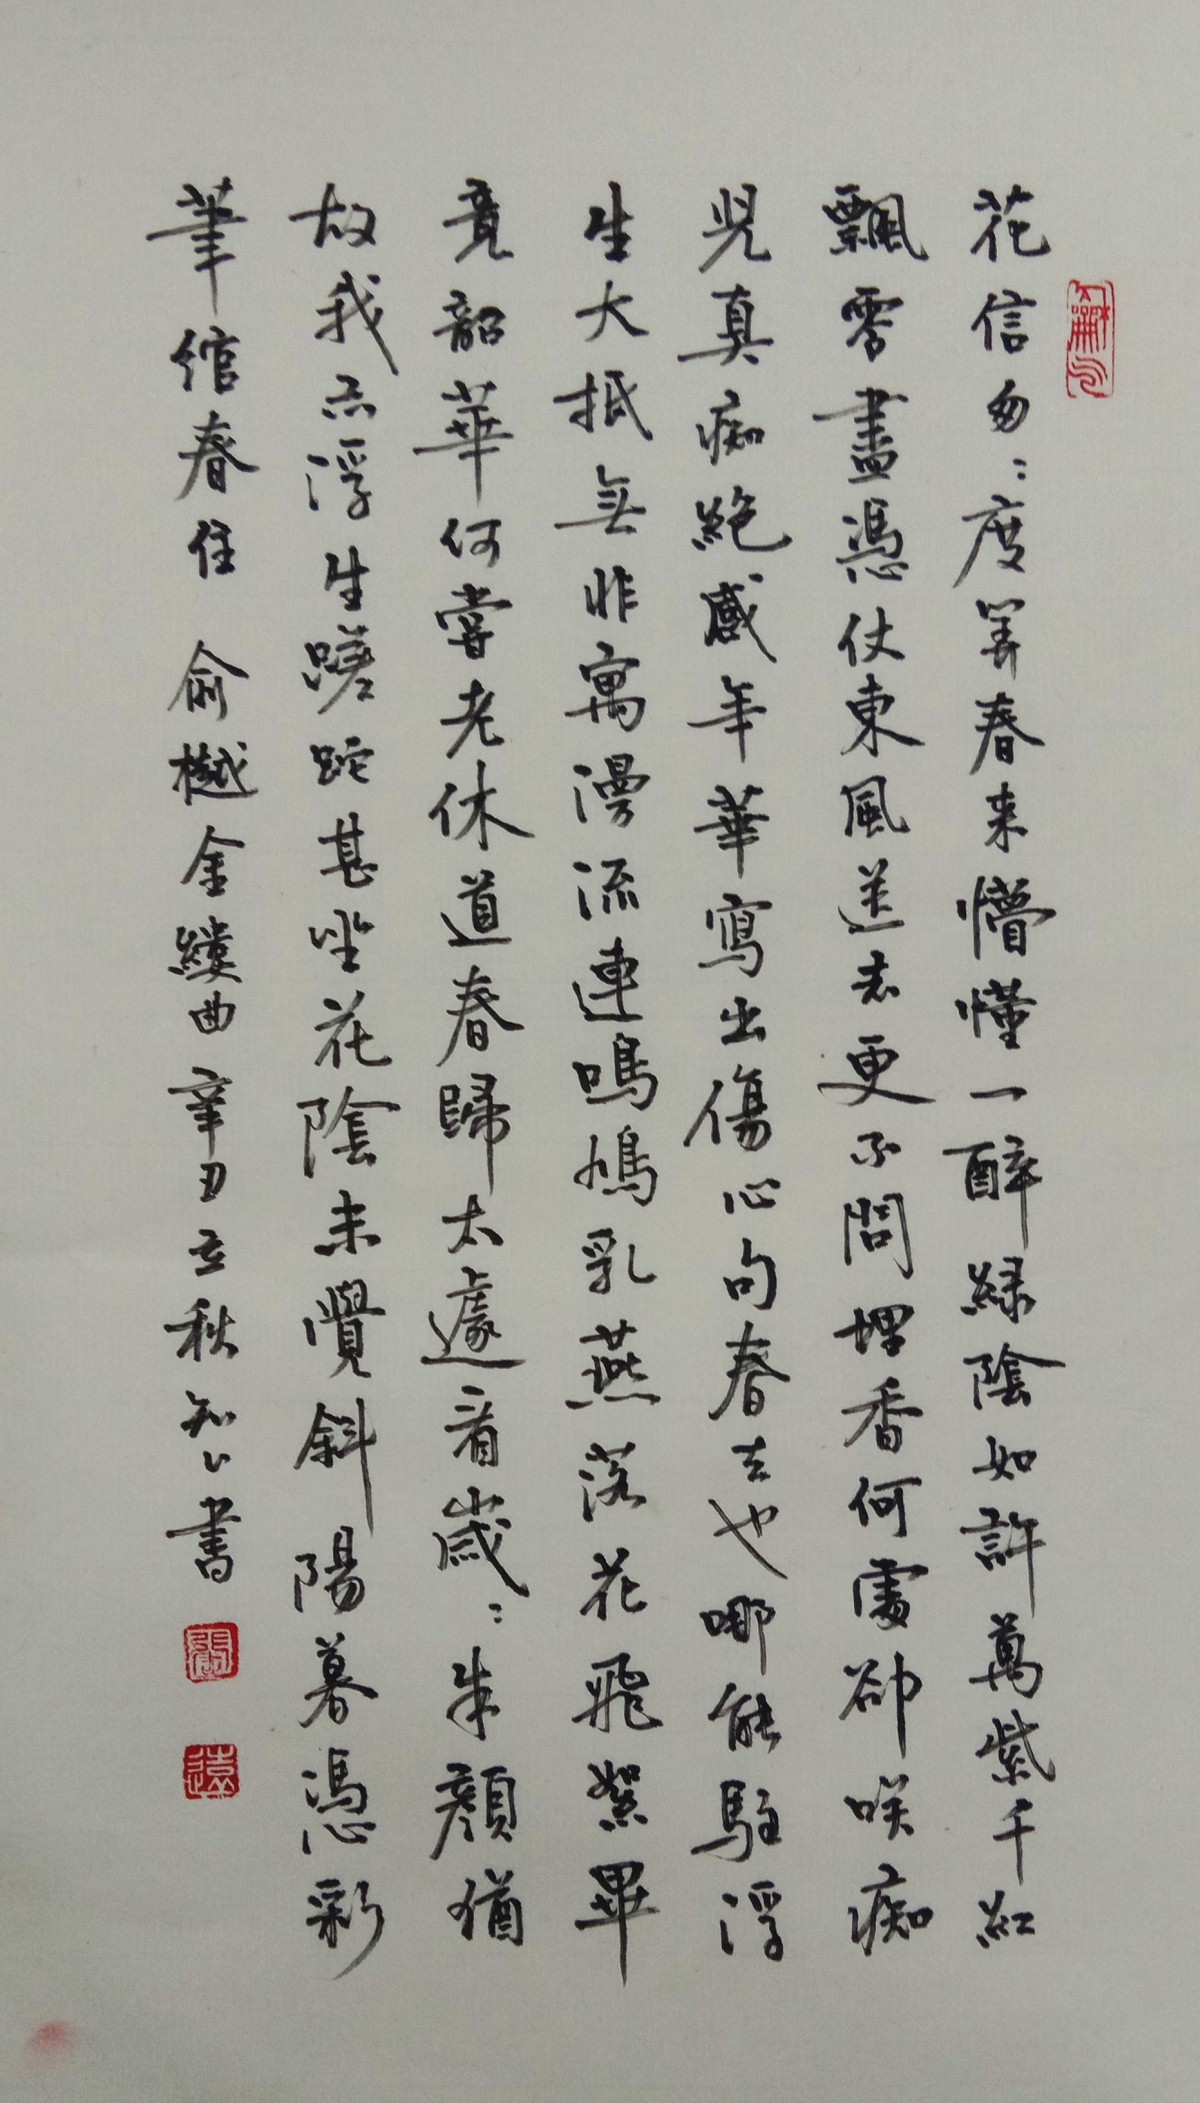 花信匆:度算春来懵懂一醉緑陰如許萬紫千紅
飄零盡憑仗東風送去更不問埋香何處卻咲痴
児真痴絶感年華寫出傷心句春去也哪能駐浮
生大抵無非寓漫流連鳴鳩乳燕落花飛絮畢
竟韶華何嘗老休道春歸太遽看歲:朱顔猶
故我亦浮生蹉跎甚坐花陰未覺斜陽暮憑彩
筆綰春住 俞樾金縷曲辛丑立秋知公書
遠